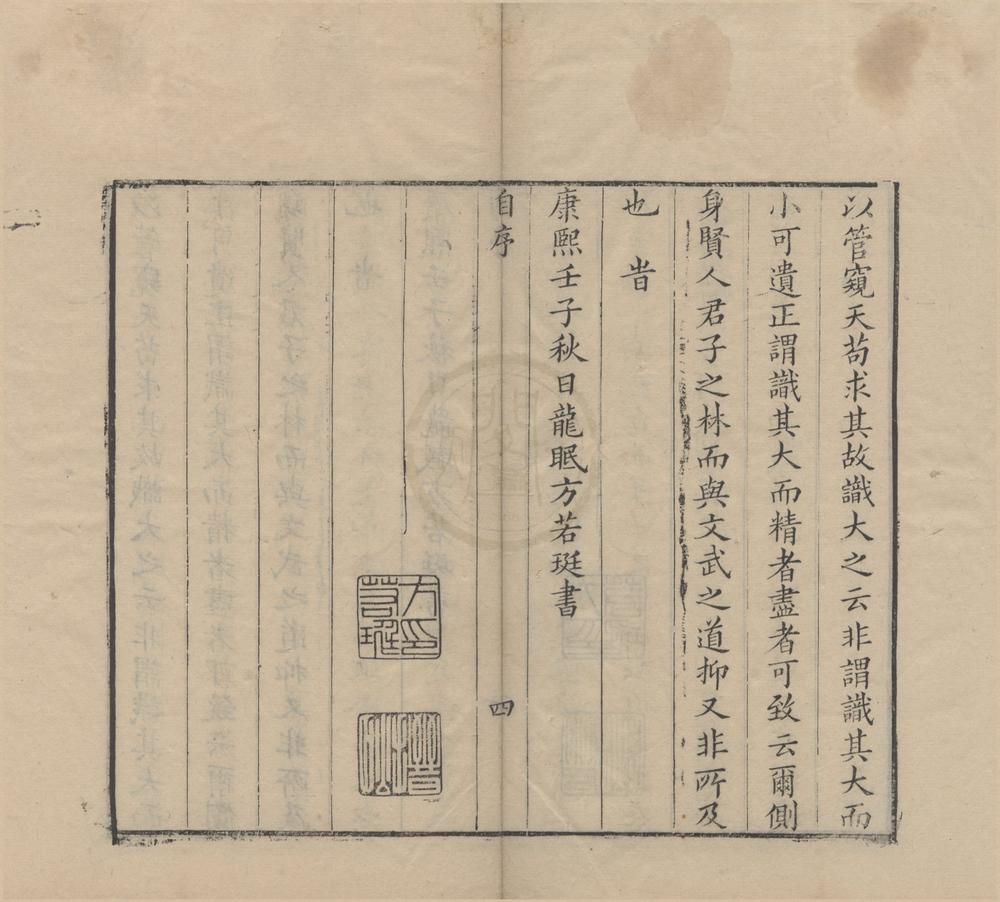 以管窺天苟求其故識大之云非謂識其大而
小可遺正謂識其大而精者盡者可致云爾側
身賢人君子之林而與文武之道抑又非所及
也 旹
康熙壬子秋日龍眠方若珽書
自序 四
方若珽印